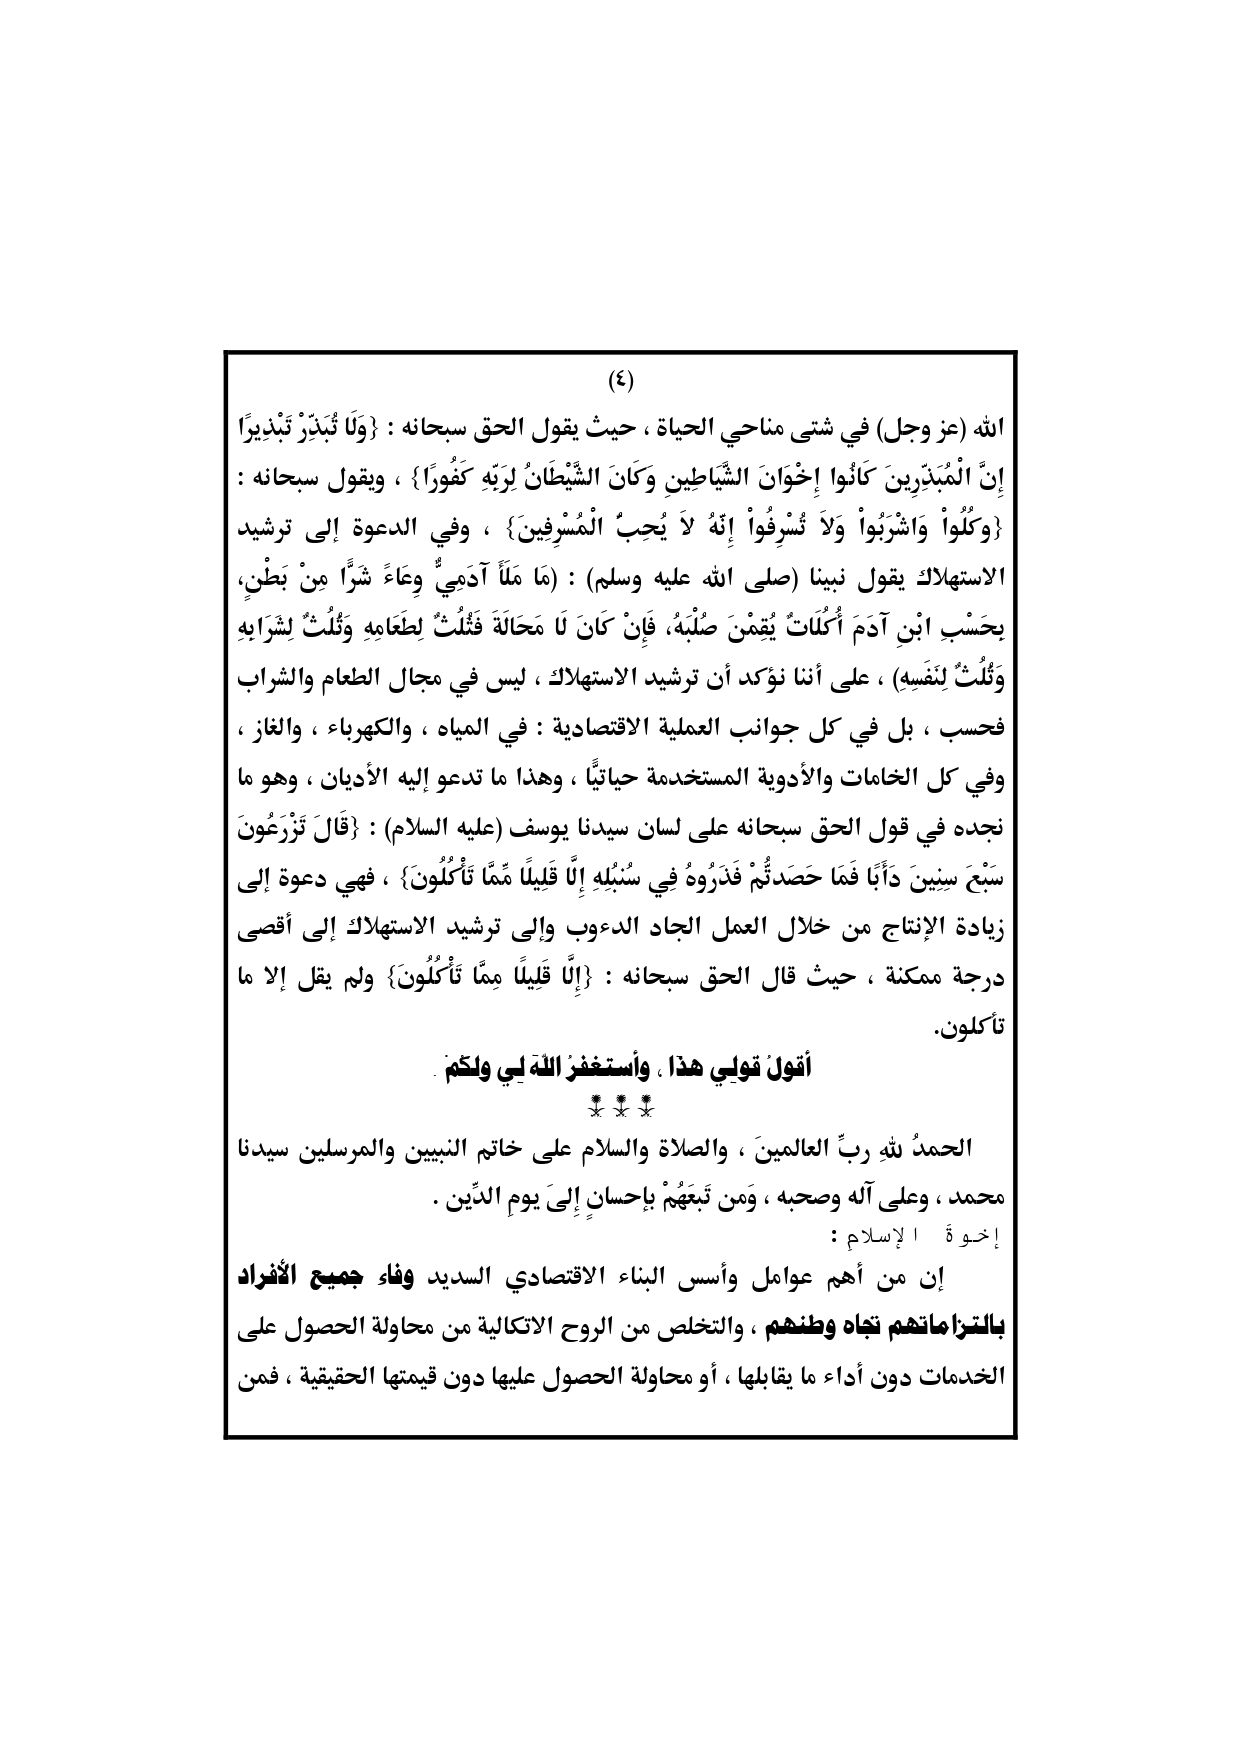 (٤)
الله (عز وجل) في شتى مناحي الحياة ، حيث يقول الحق سبحانه : {وَلَا تُبَذِّرْ تَبْذِيرًا
إِنَّ الْمُبَذِّرِينَ كَانُوا إِخْوَانَ الشَّيَاطِينِ وَكَانَ الشَّيْطَانُ لِرَبِّهِ كَفُورًا} ، ويقول سبحانه :
{وكُلُواْ وَاشْرَبُواْ وَلاَ تُسْرِفُواْ إِنَّهُ لاَ يُحِبُّ الْمُسْرِفِينَ} ، وفي الدعوة إلى ترشيد
الاستهلاك يقول نبينا (صلى الله عليه وسلم) : (مَا مَلَأَ آدَمِيٌّ وِعَاءً شَرًّا مِنْ بَطْنٍ،
بِحَسْبِ ابْنِ آدَمَ أُكُلَاتٌ يُقِمْنَ صُلْبَهُ، فَإِنْ كَانَ لَا مَحَالَةَ فَثُلُثٌ لِطَعَامِهِ وَثُلُثٌ لِشَرَابِهِ
وَثُلُثٌ لِنَفَسِهِ) ، على أننا نؤكد أن ترشيد الاستهلاك ، ليس في مجال الطعام والشراب
فحسب ، بل في كل جوانب العملية الاقتصادية : في المياه ، والكهرباء ، والغاز ،
وفي كل الخامات والأدوية المستخدمة حياتيًّا ، وهذا ما تدعو إليه الأديان ، وهو ما
نجده في قول الحق سبحانه على لسان سيدنا يوسف (عليه السلام) : {قَالَ تَزْرَعُونَ
سَبْعَ سِنِينَ دَأَبًا فَمَا حَصَدتُّمْ فَذَرُوهُ فِي سُنبُلِهِ إِلَّا قَلِيلًا مِّمَّا تَأْكُلُونَ} ، فهي دعوة إلى
زيادة الإنتاج من خلال العمل الجاد الدءوب وإلى ترشيد الاستهلاك إلى أقصى
درجة ممكنة ، حيث قال الحق سبحانه : {إِلَّا قَلِيلًا مِمَّا تَأْكُلُونَ} ولم يقل إلا ما
تأكلون.
أقولُ قولِي هذَا ، وأستغفرُ اللهَ لِي ولكُمْ .
الحمدُ للهِ ربِّ العالمينَ ، والصلاة والسلام على خاتم النبيين والمرسلين سيدنا
محمد ، وعلى آله وصحبه ، وَمن تَبعَهُمْ بإحسانٍ إِلىَ يومِ الدِّين .
إخوةَ الإسلامِ :
إن من أهم عوامل وأسس البناء الاقتصادي السديد وفاء جميع الأفراد
بالتزاماتهم تجاه وطنهم ، والتخلص من الروح الاتكالية من محاولة الحصول على
الخدمات دون أداء ما يقابلها ، أو محاولة الحصول عليها دون قيمتها الحقيقية ، فمن